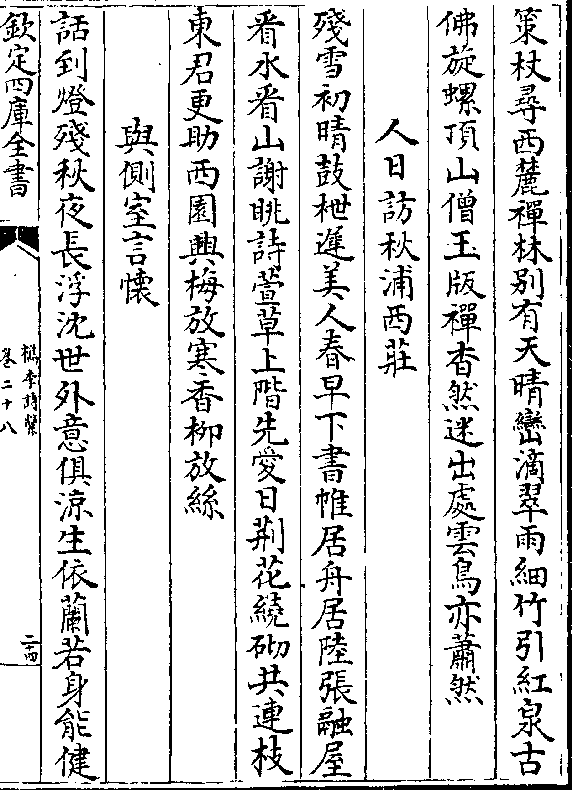 策杖尋西麓禪林别有天晴巒滴翠雨細竹引紅泉古
佛旋螺頂山僧玉版禪杳然迷出處雲鳥亦蕭然
人日訪秋浦西莊
殘雪初晴鼓枻遲美人春早下書帷居舟居陸張融屋
看水看山謝眺詩萱草上階先愛日荆花繞砌共連枝
東君更助西園興梅放寒香柳放絲
與側室言懷
話到燈殘秋夜長浮沈世外意俱涼生依蘭若身能健
欽定四庫全書
檇李詩繫
卷二十八
二四